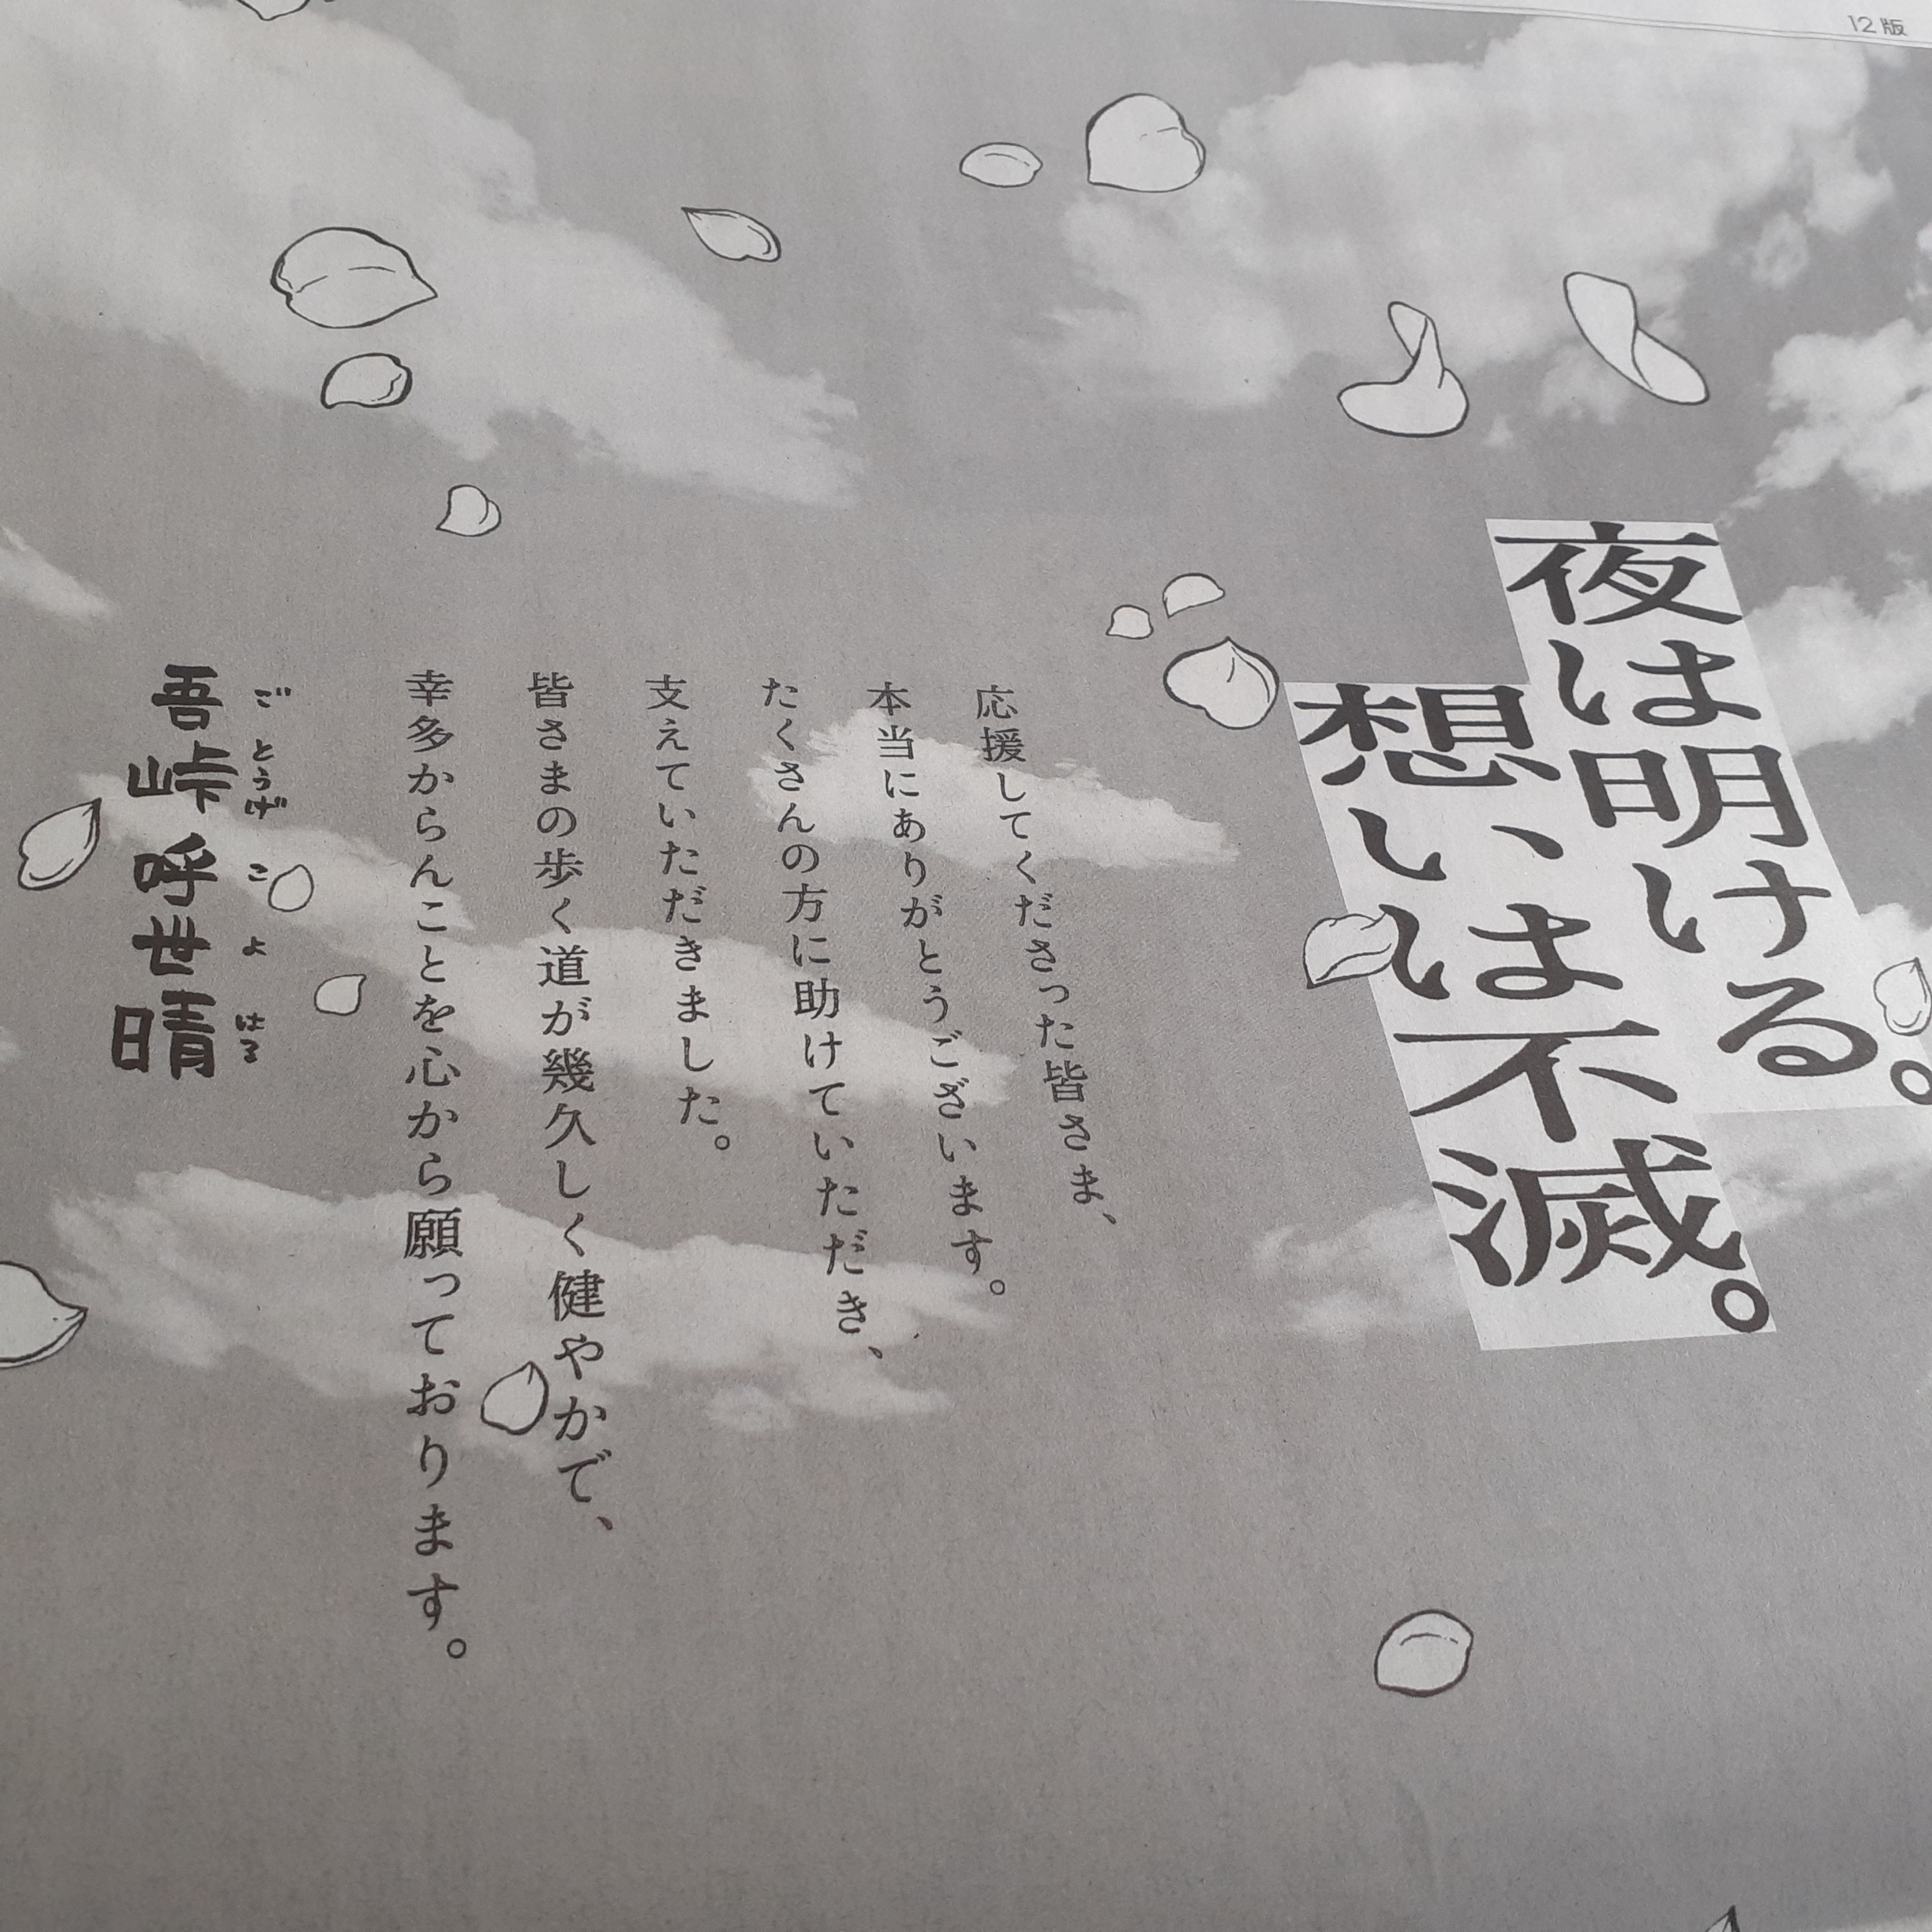 12版
夜は明ける。
想いは不滅。
応援してくださった皆さま、
本当にありがとうございます。
たくさんの方に助けていただき、
支えていただきました。
皆さまの歩く道が幾久しく健やかで、
幸多からんことを心から願っております。
ごとうげこよはる
吾峠呼世晴